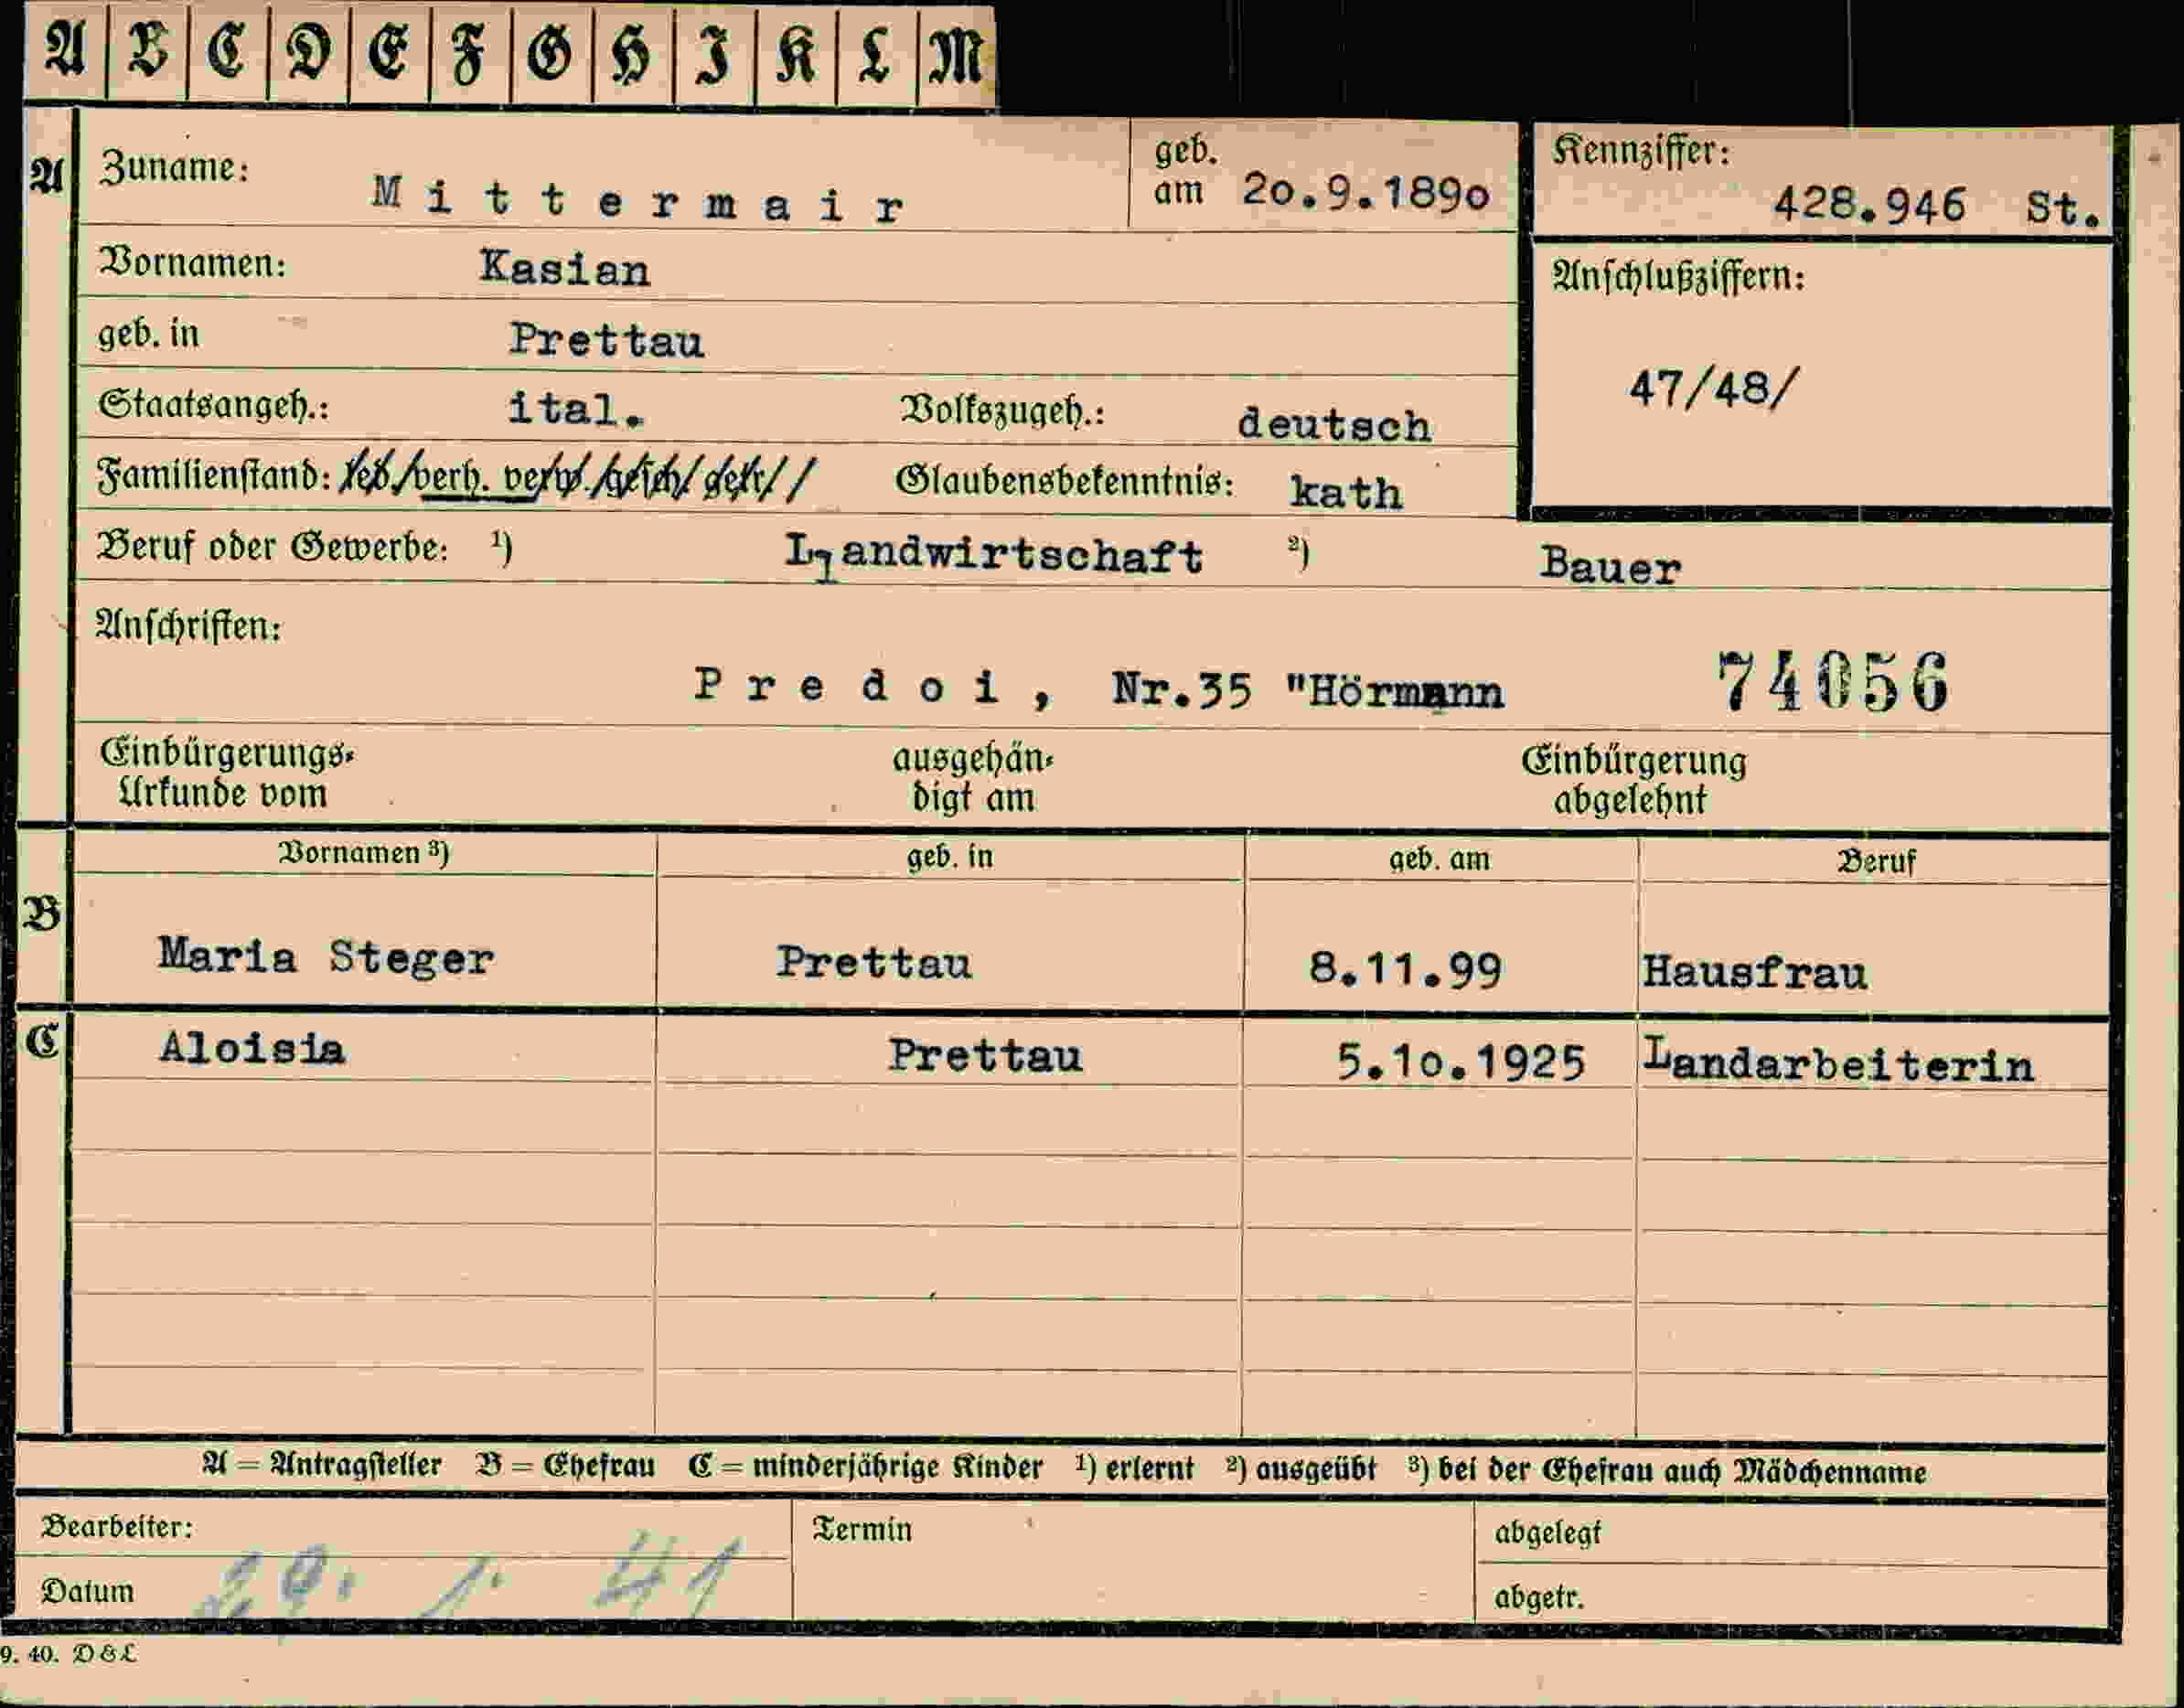 A B C D E F G H I K L M
A
Zuname: Mittermair
geb. am 20.9.1890
Kennziffer: 428.946 St.
Vornamen: Kasian
Anschlußziffern:
47/48/
geb. in Prettau
Staatsangeh.: ital. Volkszugeh.: deutsch
Familienstand: led. verh. verw. gesch. getr. Glaubensbekenntnis: kath
Beruf oder Gewerbe: ¹) Landwirtschaft ²) Bauer
Anschriften:
Predoi, Nr.35 "Hörmann 74056
Einbürgerungs-
Urkunde vom
ausgehän-
digt am
Einbürgerung
abgelehnt
Vornamen ³) geb. in geb. am Beruf
B
Maria Steger Prettau 8.11.99 Hausfrau
C
Aloisia Prettau 5.10.1925 Landarbeiterin
A = Antragsteller B = Ehefrau C = minderjährige Kinder ¹) erlernt ²) ausgeübt ³) bei der Ehefrau auch Mädchenname
Bearbeiter: Termin abgelegt
Datum 29. 1. 41 abgetr.
9. 40. D & L